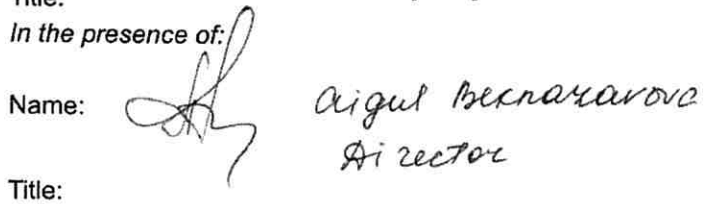 Title:
In the presence of:
Name: Aigul Beknazarova
Director
Title: